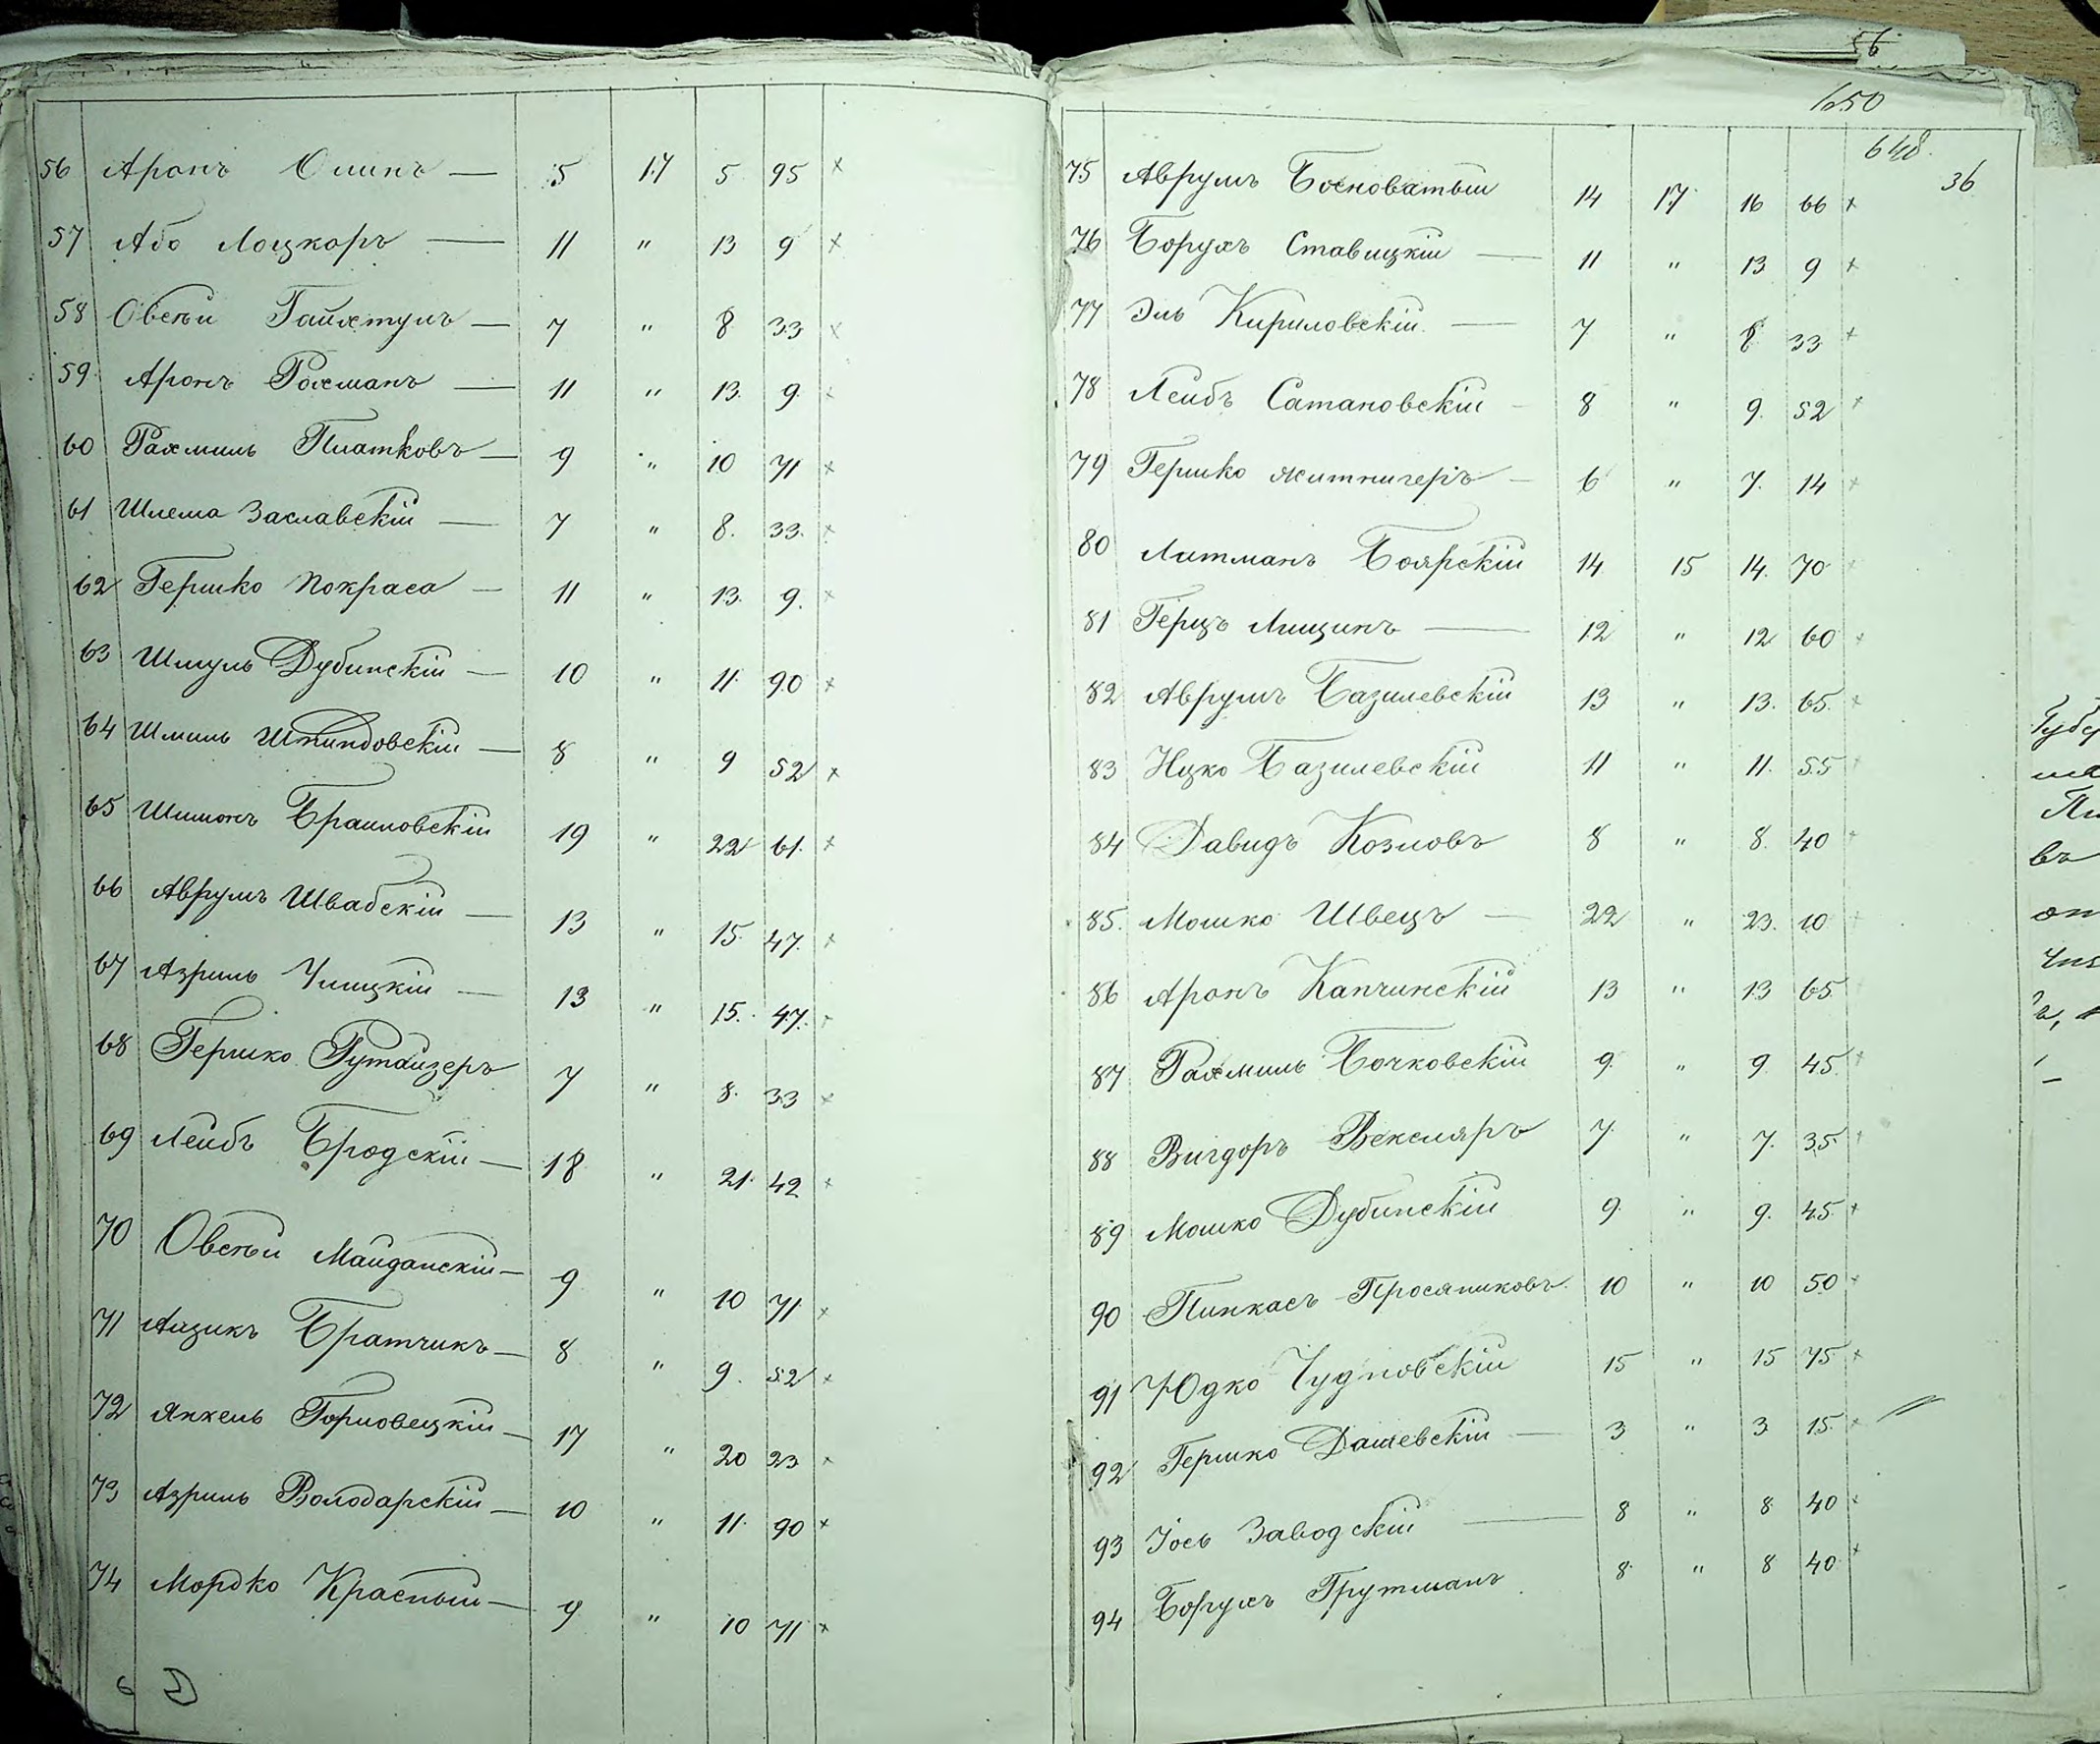 56 Аронъ Олинъ — 5 17 5 95 ×
57 Або Лоцкоръ — 11 " 13 9 ×
58 Овсѣй Гайхтулъ — 7 " 8 33 ×
59 Аронъ Рохманъ — 11 " 13. 9 ×
60 Рахмиль Платковъ — 9 " 10 71 ×
61 Шлема Заславскій — 7 " 8. 33. ×
62 Гершко Покраса — 11 " 13. 9. ×
63 Шмуль Дубинскій — 10 " 11. 90 ×
64 Шмиль — 8 " 9 52 ×
65 Шимонъ Браиловскій 19 " 22 61. ×
66 Аврумъ Швабскій — 13 " 15. 47. ×
67 Азриль — 13 " 15. 47. ×
68 Гершко Гутайзеръ 7 " 8. 33 ×
69 Лейбъ Бродскій — 18 " 21. 42 ×
70 Овсѣй Майданскій — 9 " 10 71 ×
71 Аизикъ Братчикъ — 8 " 9. 52 ×
72 Янкель Горловецкій — 17 " 20 23 ×
73 Азриль Володарскій — 10 " 11. 90 ×
74 Мордко Красный — 9 " 10 71 ×
56
650
648.
36
75 Аврумъ Босноватый 14 17 16 66 ×
76 Борухъ Ставицкій — 11 " 13 9 ×
77 Эль Кириловскій — 7 " 8 33 ×
78 Лейбъ Сатановскій — 8 " 9. 52 ×
79 Гершко Житничеръ — 6 " 7. 14 ×
80 Литманъ Боярскій 14 15 14. 70 ×
81 Герцъ Лищинъ — 12 " 12 60 ×
82 Аврумъ Базилевскій 13 " 13. 65. ×
83 Ицко Базилевскій 11 " 11. 55 ×
84 Давидъ Козловъ 8 " 8. 40 ×
85. Мошко Швецъ — 22 " 23. 10 ×
86 Аронъ Капчинскій 13 " 13 65
87 Рахмиль Бочковскій 9. " 9 45. ×
88 Вигдоръ Вексляръ 7. " 7. 35. ×
89 Мошко Дубинскій 9. " 9. 45. ×
90 Пинкасъ Просяниковъ 10 " 10 50 ×
91 Юдко Чудновскій 15 " 15 75 ×
92 Гершко Дашевскій — 3 " 3 15. ×
93 Іось Заводскій — 8 " 8 40 ×
94 Борухъ Грутманъ 8 " 8 40 ×